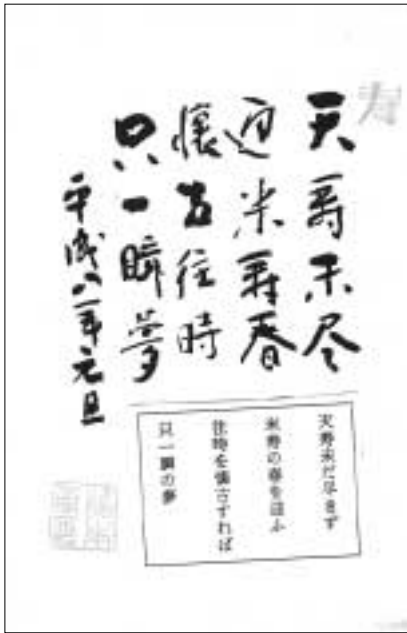 寿
天寿未尽
迎米寿春
懐古往時
只一瞬夢
平成八年元旦
天寿未だ尽きず
米寿の春を迎ふ
往時を懐古すれば
只一瞬の夢